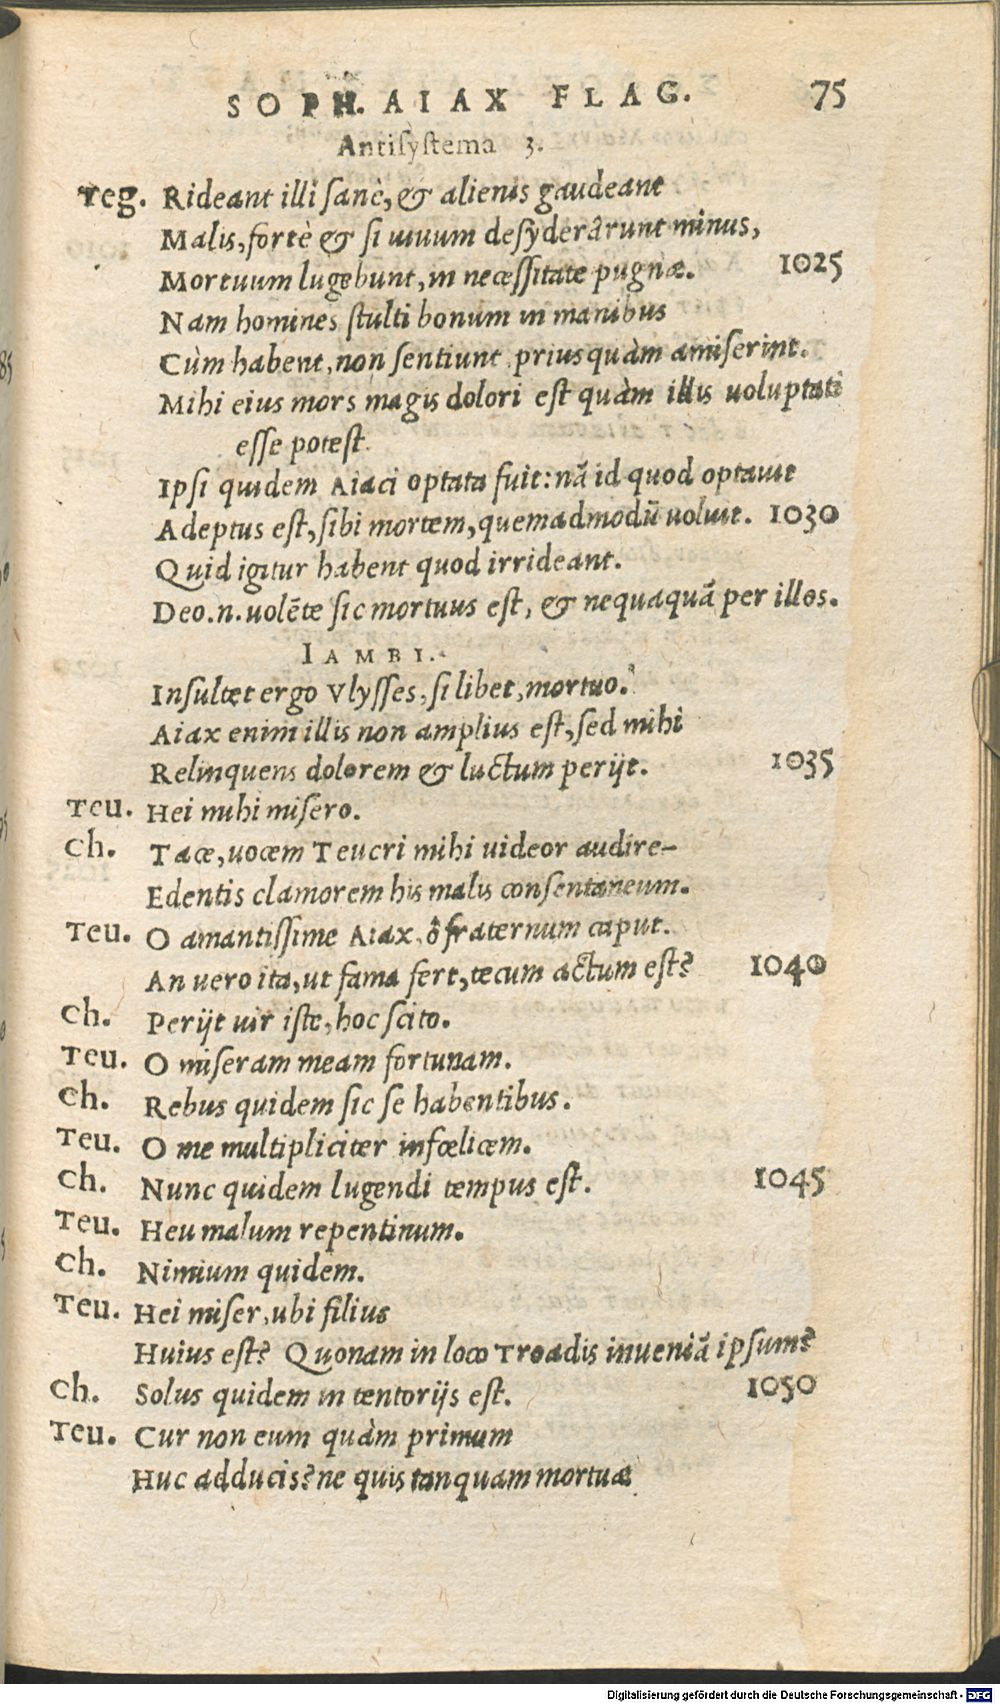 SOPH. AIAX FLAG. 75
Antisystema 3.
Teg. Rideant illi sanè, & alienis gaudeant
Malis, fortè & si uiuum desyderârunt minus,
Mortuum lugebunt, in necessitate pugnæ. 1025
Nam homines stulti bonum in manibus
Cùm habent, non sentiunt priusquàm amiserint.
Mihi eius mors magis dolori est quàm illis uoluptati
esse potest.
Ipsi quidem Aiaci optata fuit: nã id quod optauit
Adeptus est, sibi mortem, quemadmodũ uoluit. 1030
Quid igitur habent quod irrideant.
Deo.n.uolẽte sic mortuus est, & nequaquã per illos.
IAMBI.
Insultet ergo Vlysses, si libet, mortuo.
Aiax enim illis non amplius est, sed mihi
Relinquens dolorem & luctum perijt. 1035
Teu. Hei mihi misero.
Ch. Tace, uocem Teucri mihi uideor audire-
Edentis clamorem his malis consentaneum.
Teu. O amantissime Aiax, ô fraternum caput.
An uero ita, ut fama fert, tecum actum est? 1040
Ch. Perijt uir iste, hoc scito.
Teu. O miseram meam fortunam.
Ch. Rebus quidem sic se habentibus.
Teu. O me multipliciter infœlicem.
Ch. Nunc quidem lugendi tempus est. 1045
Teu. Heu malum repentinum.
Ch. Nimium quidem.
Teu. Hei miser, ubi filius
Huius est? Quonam in loco Troadis inueniã ipsum?
Ch. Solus quidem in tentorijs est. 1050
Teu. Cur non eum quàm primum
Huc adducis? ne quis tanquam mortuæ
Digitalisierung gefördert durch die Deutsche Forschungsgemeinschaft - DFG